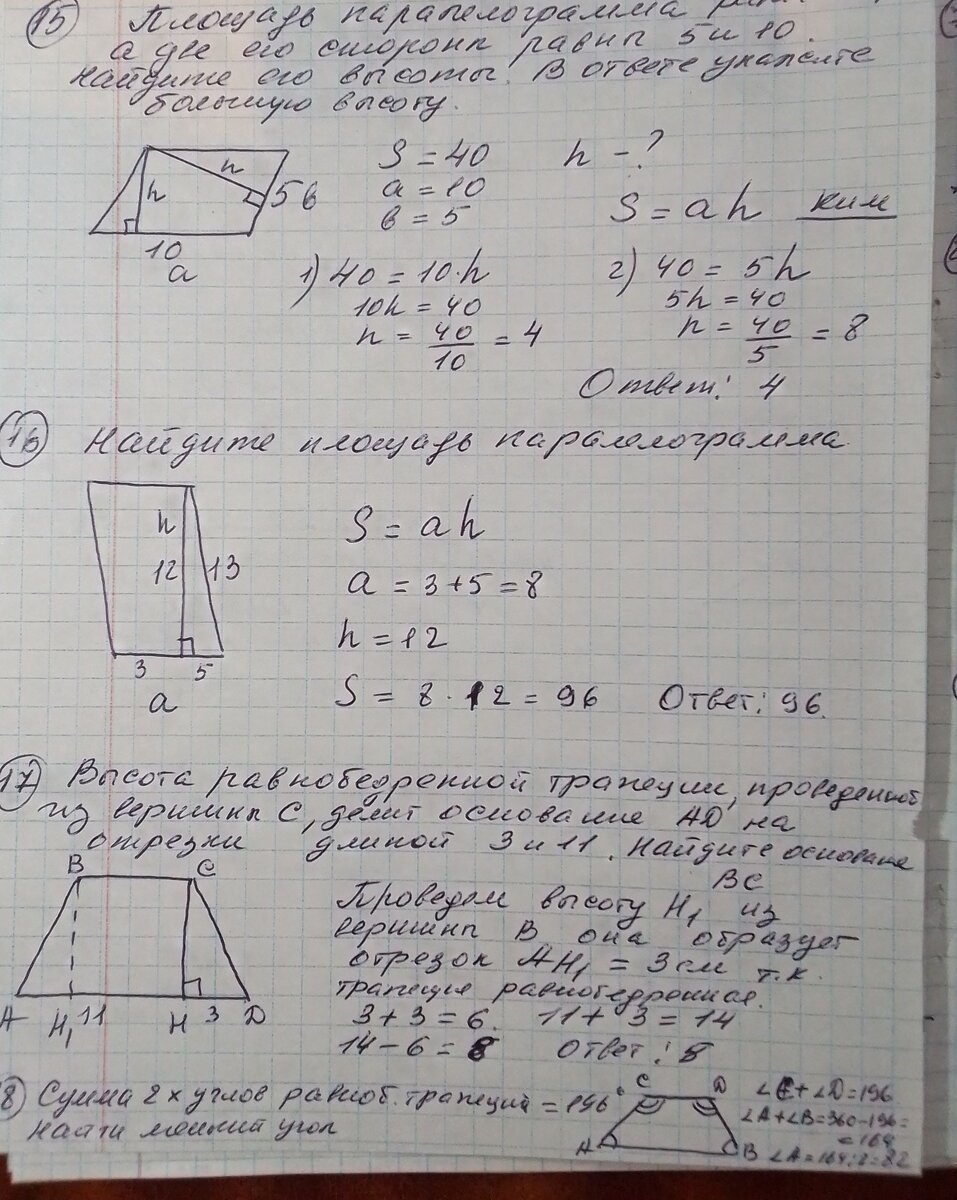 15 Площадь паралелограмма
а две его стороны равны 5 и 10.
Найдите его высоты. В ответе укажите
большую высоту.
h
h
5 в
10
а
S = 40
а = 10
в = 5
h - ?
S = ah ким
1) 40 = 10·h
10h = 40
h = 40/10 = 4
2) 40 = 5h
5h = 40
h = 40/5 = 8
Ответ: 4
16 Найдите площадь паралелограмма
h
12
13
3
5
а
S = ah
а = 3+5 = 8
h = 12
S = 8 · 12 = 96 Ответ: 96.
17 Высота равнобедренной трапеции, проведенной
из вершины С, делит основание AD на
отрезки длиной 3 и 11. Найдите основание
BC
B
C
A
H₁
11
H
3
D
Проведем высоту H₁ из
вершины В она образует
отрезок AH₁ = 3 см т.к.
трапеция равнобедренная.
3+3 = 6. 11+3 = 14
14-6 = 8 Ответ: 8
8) Сумма 2х углов равноб. трапеции = 196°
Найти меньший угол
C
D
A
B
∠C+∠D=196
∠A+∠B=360-196=
=164
∠A=164:2=82